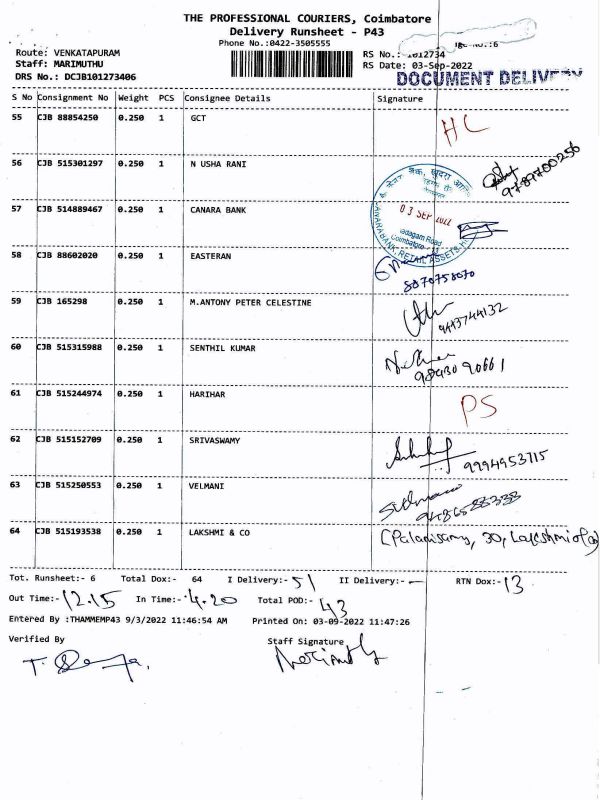 THE PROFESSIONAL COURIERS, Coimbatore
Delivery Runsheet - P43
Phone No.:0422-3505555
Route: VENKATAPURAM
Staff: MARIMUTHU
DRS No.: DCJB101273406
RS No.: 1012734
RS Date: 03-Sep-2022
DOCUMENT DELIVERY
S No Consignment No Weight PCS Consignee Details Signature
55 CJB 88854250 0.250 1 GCT HC
56 CJB 515301297 0.250 1 N USHA RANI 9789700256
57 CJB 514889467 0.250 1 CANARA BANK
03 SEP 2022
Coimbatore
CANARA BANK, RETAIL ASSETS
58 CJB 88602020 0.250 1 EASTERAN 8870758070
59 CJB 165298 0.250 1 M.ANTONY PETER CELESTINE 9443744132
60 CJB 515315988 0.250 1 SENTHIL KUMAR 98430 90661
61 CJB 515244974 0.250 1 HARIHAR PS
62 CJB 515152709 0.250 1 SRIVASWAMY 9994953715
63 CJB 515250553 0.250 1 VELMANI 9486588338
64 CJB 515193538 0.250 1 LAKSHMI & CO (Palanisamy, 30,
Tot. Runsheet:- 6 Total Dox:- 64 I Delivery:- 51 II Delivery:- — RTN Dox:- 13
Out Time:- 12.15 In Time:- 4.20 Total POD:- 43
Entered By :THAMMEMP43 9/3/2022 11:46:54 AM Printed On: 03-09-2022 11:47:26
Verified By Staff Signature